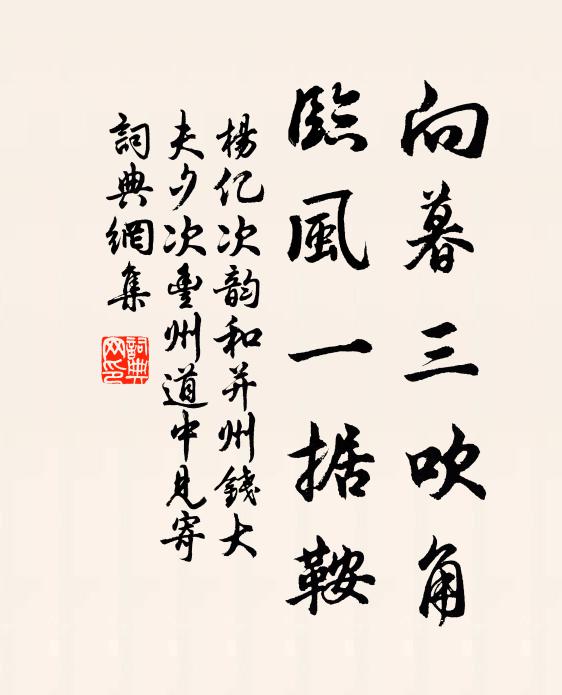 向暮三吹角
臨風一据鞍
楊亿次韵和并州錢大
夫夕次豊州道中見寄
詞典網集
詞典
网印